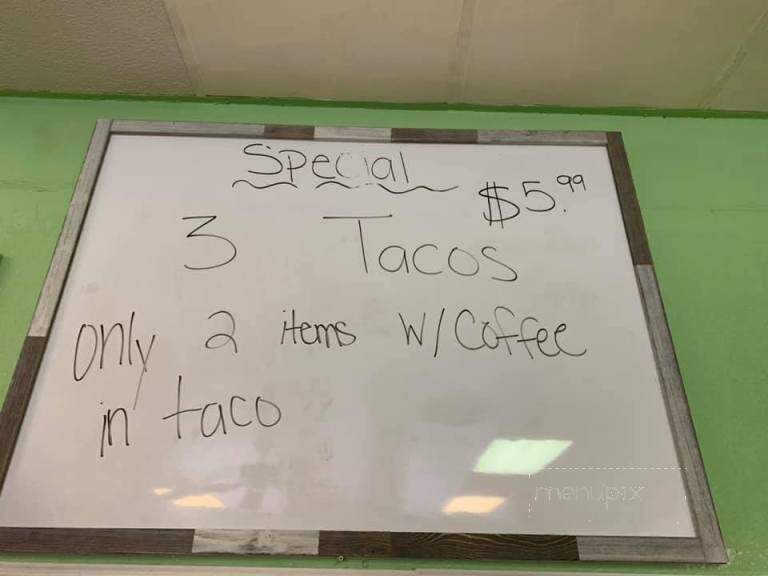 Special
$5.99
3 Tacos
only 2 items W/Coffee
in taco
menupix